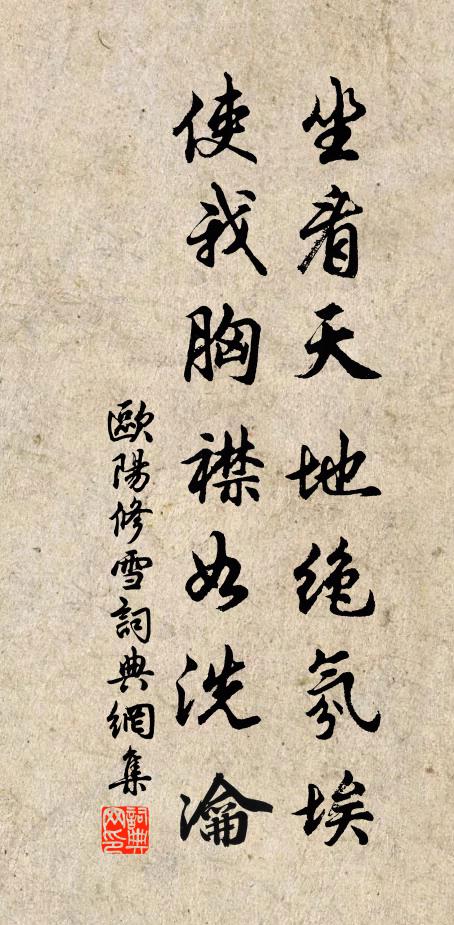 坐看天地绝氛埃
使我胸襟如洗瀹
歐陽修雪詞典網集
詞典网印